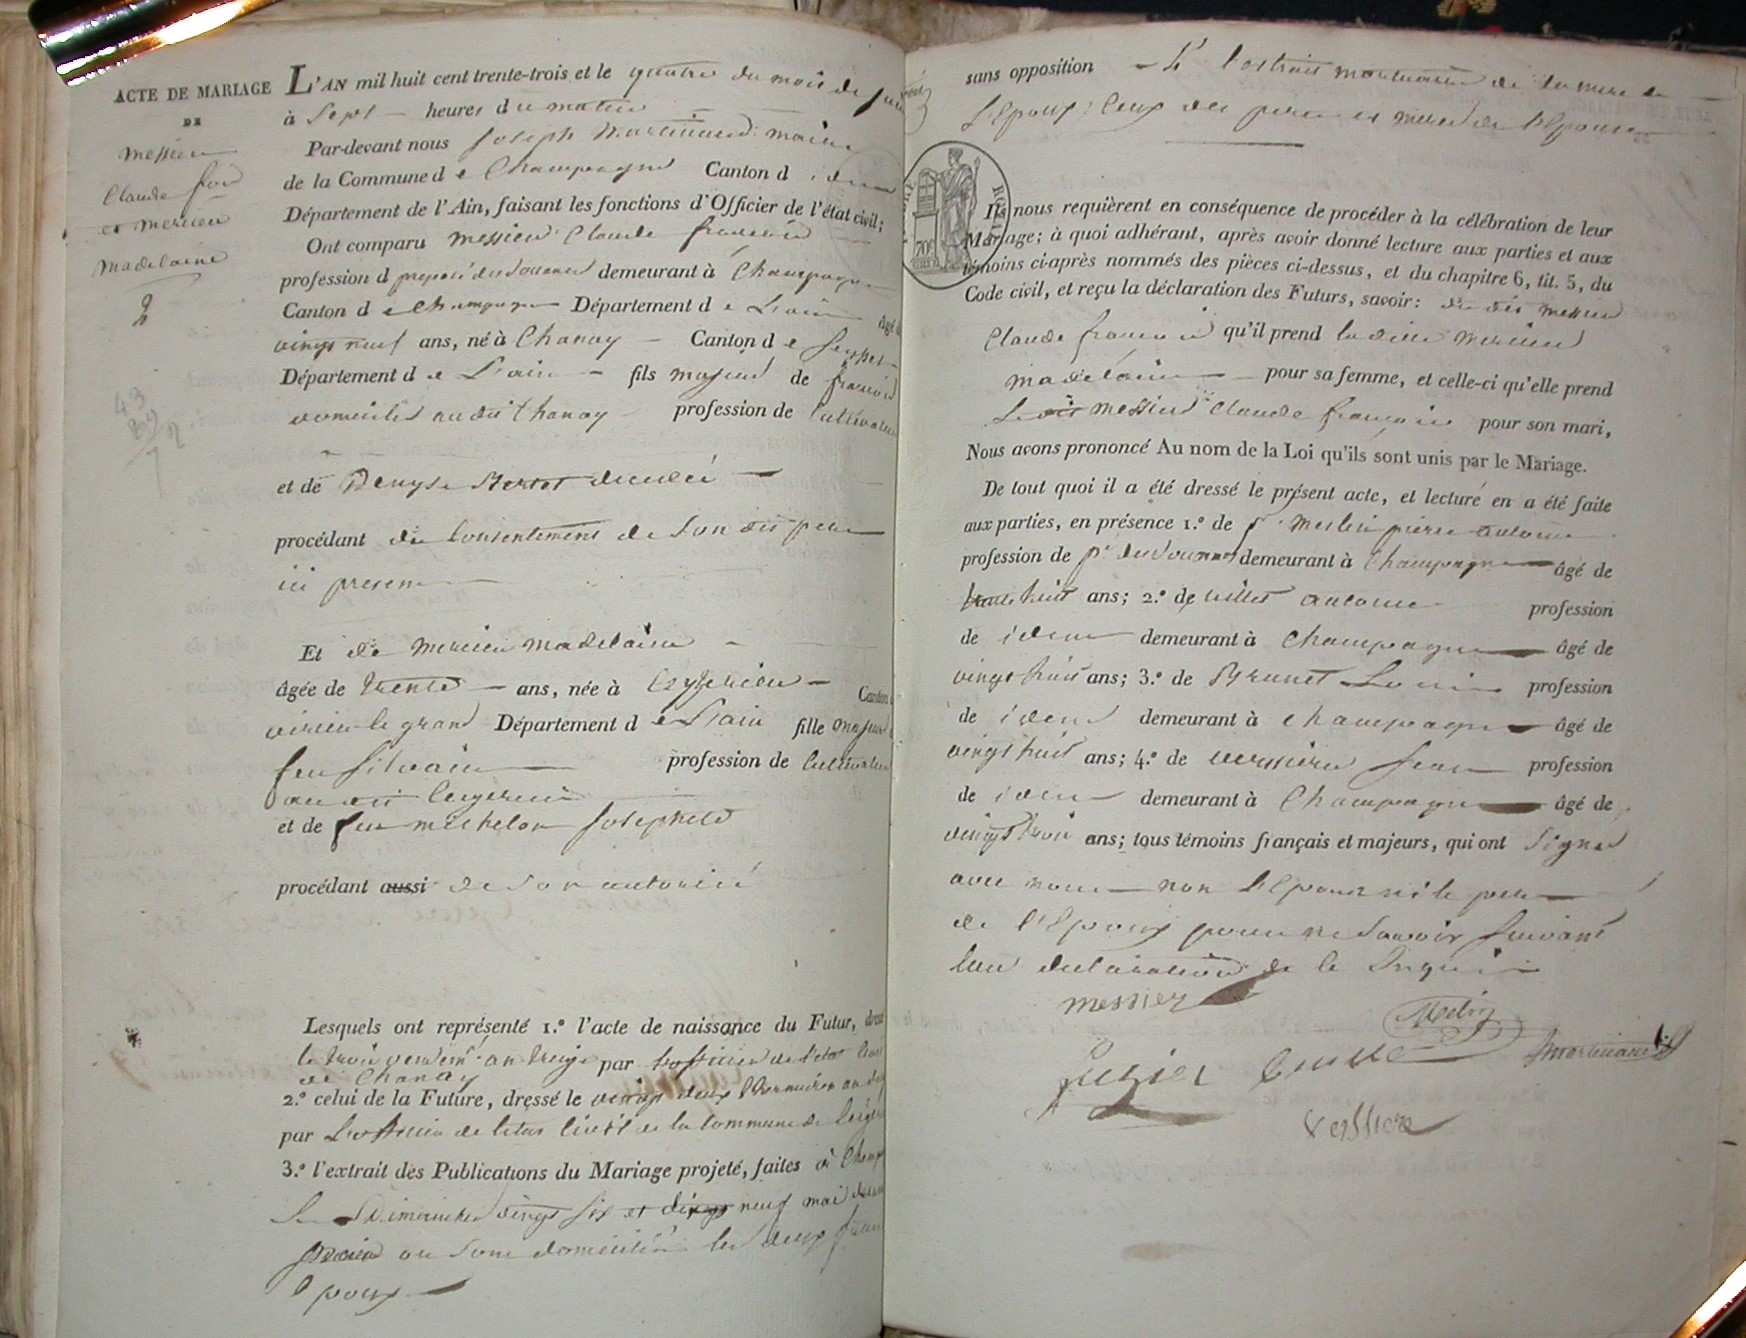 ACTE DE MARIAGE
DE
messier
Claude fois
et mercier
madelaine
2
L'AN mil huit cent trente-trois et le quatre du mois de juin
à Sept heures du matin
Par-devant nous Joseph Martinand maire
de la Commune de Champagne Canton d idem
Département de l'Ain, faisant les fonctions d'Officier de l'état civil;
Ont comparu messier Claude françois
profession d préposé des Douanes demeurant à Champagne
Canton de Champagne Département de L'ain âgé d
vingt neuf ans, né à Chanay Canton de Seyssel
Département de L'ain fils majeur de françois
domicilié au dit Chanay profession de Cultivateur
et de Denyse Bertet décédée
procédant du Consentement de Son dit père
ici présent
Et de mercier madelaine
âgée de trente ans, née à Ceyzerieu Canton
virieu le grand Département de L'ain fille majeure
feu Silvain profession de Cultivateur
au dit Ceyzerieu
et de feue michelon Josephete
procédant aussi de son autorité
Lesquels ont représenté 1.º l'acte de naissance du Futur, dressé
le trois vendem. an treize par L'officier de l'état Civil
de Chanay
2.º celui de la Future, dressé le vingt deux
par L'officier de l'état Civil de la Commune de
3.º l'extrait des Publications du Mariage projeté, faites à Champ
Les Dimanches vingt six et dix neuf mai
ou sont domiciliés les deux futurs
Epoux
sans opposition 4º L'extrait mortuaire de la mère de
L'Epoux; Ceux des père et mère de l'Epouse
Ils nous requièrent en conséquence de procéder à la célébration de leur
Mariage; à quoi adhérant, après avoir donné lecture aux parties et aux
témoins ci-après nommés des pièces ci-dessus, et du chapitre 6, tit. 5, du
Code civil, et reçu la déclaration des Futurs, savoir: du dit messier
Claude françois qu'il prend la dite mercier
madelaine pour sa femme, et celle-ci qu'elle prend
Le dit messier Claude françois pour son mari,
Nous avons prononcé Au nom de la Loi qu'ils sont unis par le Mariage.
De tout quoi il a été dressé le présent acte, et lecture en a été faite
aux parties, en présence 1.º de pierre antoine
profession de p.é des Douanes demeurant à Champagne âgé de
trente huit ans; 2.º de antoine profession
de idem demeurant à Champagne âgé de
vingt huit ans; 3.º de Brunet Louis profession
de idem demeurant à Champagne âgé de
vingt huit ans; 4.º de Verssiere Jean profession
de idem demeurant à Champagne âgé de
vingt trois ans; tous témoins français et majeurs, qui ont Signé
avec nous non L'Epouse ni le père
de l'Epoux pour ne Savoir Suivant
leur déclaration de ce Enquis
messier
Martinand
Verssiere